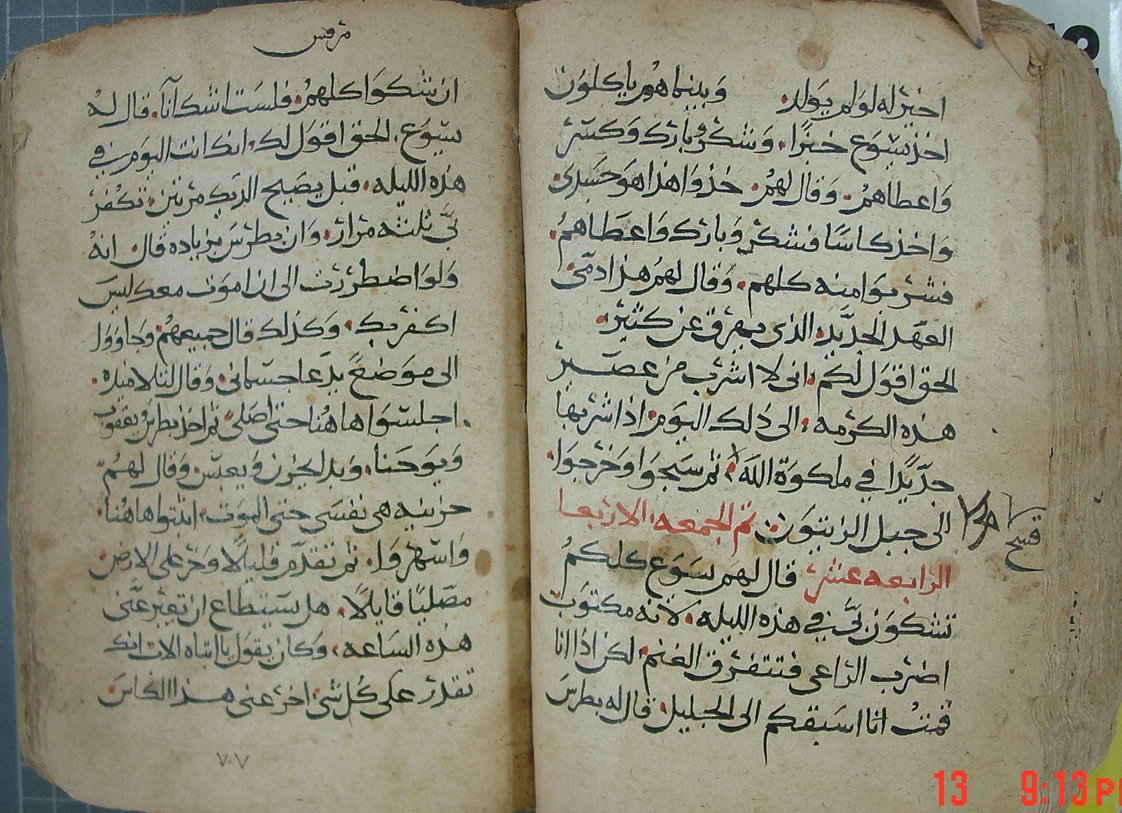 اخير له لو لم يولد. وبينما هم ياكلون
اخذ يسوع خبزا. وشكر وبارك وكسر
واعطاهم. وقال لهم. خذوا هذا هو جسدى
واخذ كاسا فشكر وبارك واعطاهم.
فشربوا منه كلهم. وقال لهم هذا دمى
العهد الجديد. الذى يهرق عن كثير.
الحق اقول لكم. انى لا اشرب من عصير
هذه الكرمه. الى ذلك اليوم. اذا شربها
جديدا في ملكوة الله. ثم سبحوا وخرجوا.
الى جبل الزيتون. تم الجمعه. الاربعا
الرابعه عشر قال لهم يسوع كلكم
تشكون فىّ في هذه الليله. لانه مكتوب
اضرب الراعى فتتفرق الغنم. لكن اذا انا
قمت انا اسبقكم الى الجليل. قال له بطرس
مرقس
ان شكوا كلهم. فلست اشك انا. قال له
يسوع. الحق اقول لك. انك انت اليوم في
هذه الليله. قبل يصيح الديك مرتين. تكفر
بى ثلثه مرار. وان بطرس بزياده قال. انه
ولو اضطررت الى ان اموت معك ليس
اكفر بك. وكذلك قال جميعهم. وجاووا
الى موضع يدعا جسمانى. وقال لتلاميذه.
اجلسوا هاهنا حتى اصلى. ثم اخذ بطرس ويعقوب
ويوحنا. وبدا يحزن ويعبس. وقال لهم
حزينه هى نفسى حتى الموت. اثبتوا هاهنا.
واسهروا. ثم تقدم قليلا وخر على الارض
مصليا قايلا. هل يستطاع ان تعبر عنى
هذه الساعه. وكان يقول يا ابتاه الاب انك
تقدر على كل شى. اخر عنى هذا الكاس
٧٠٧
13 9:13 P